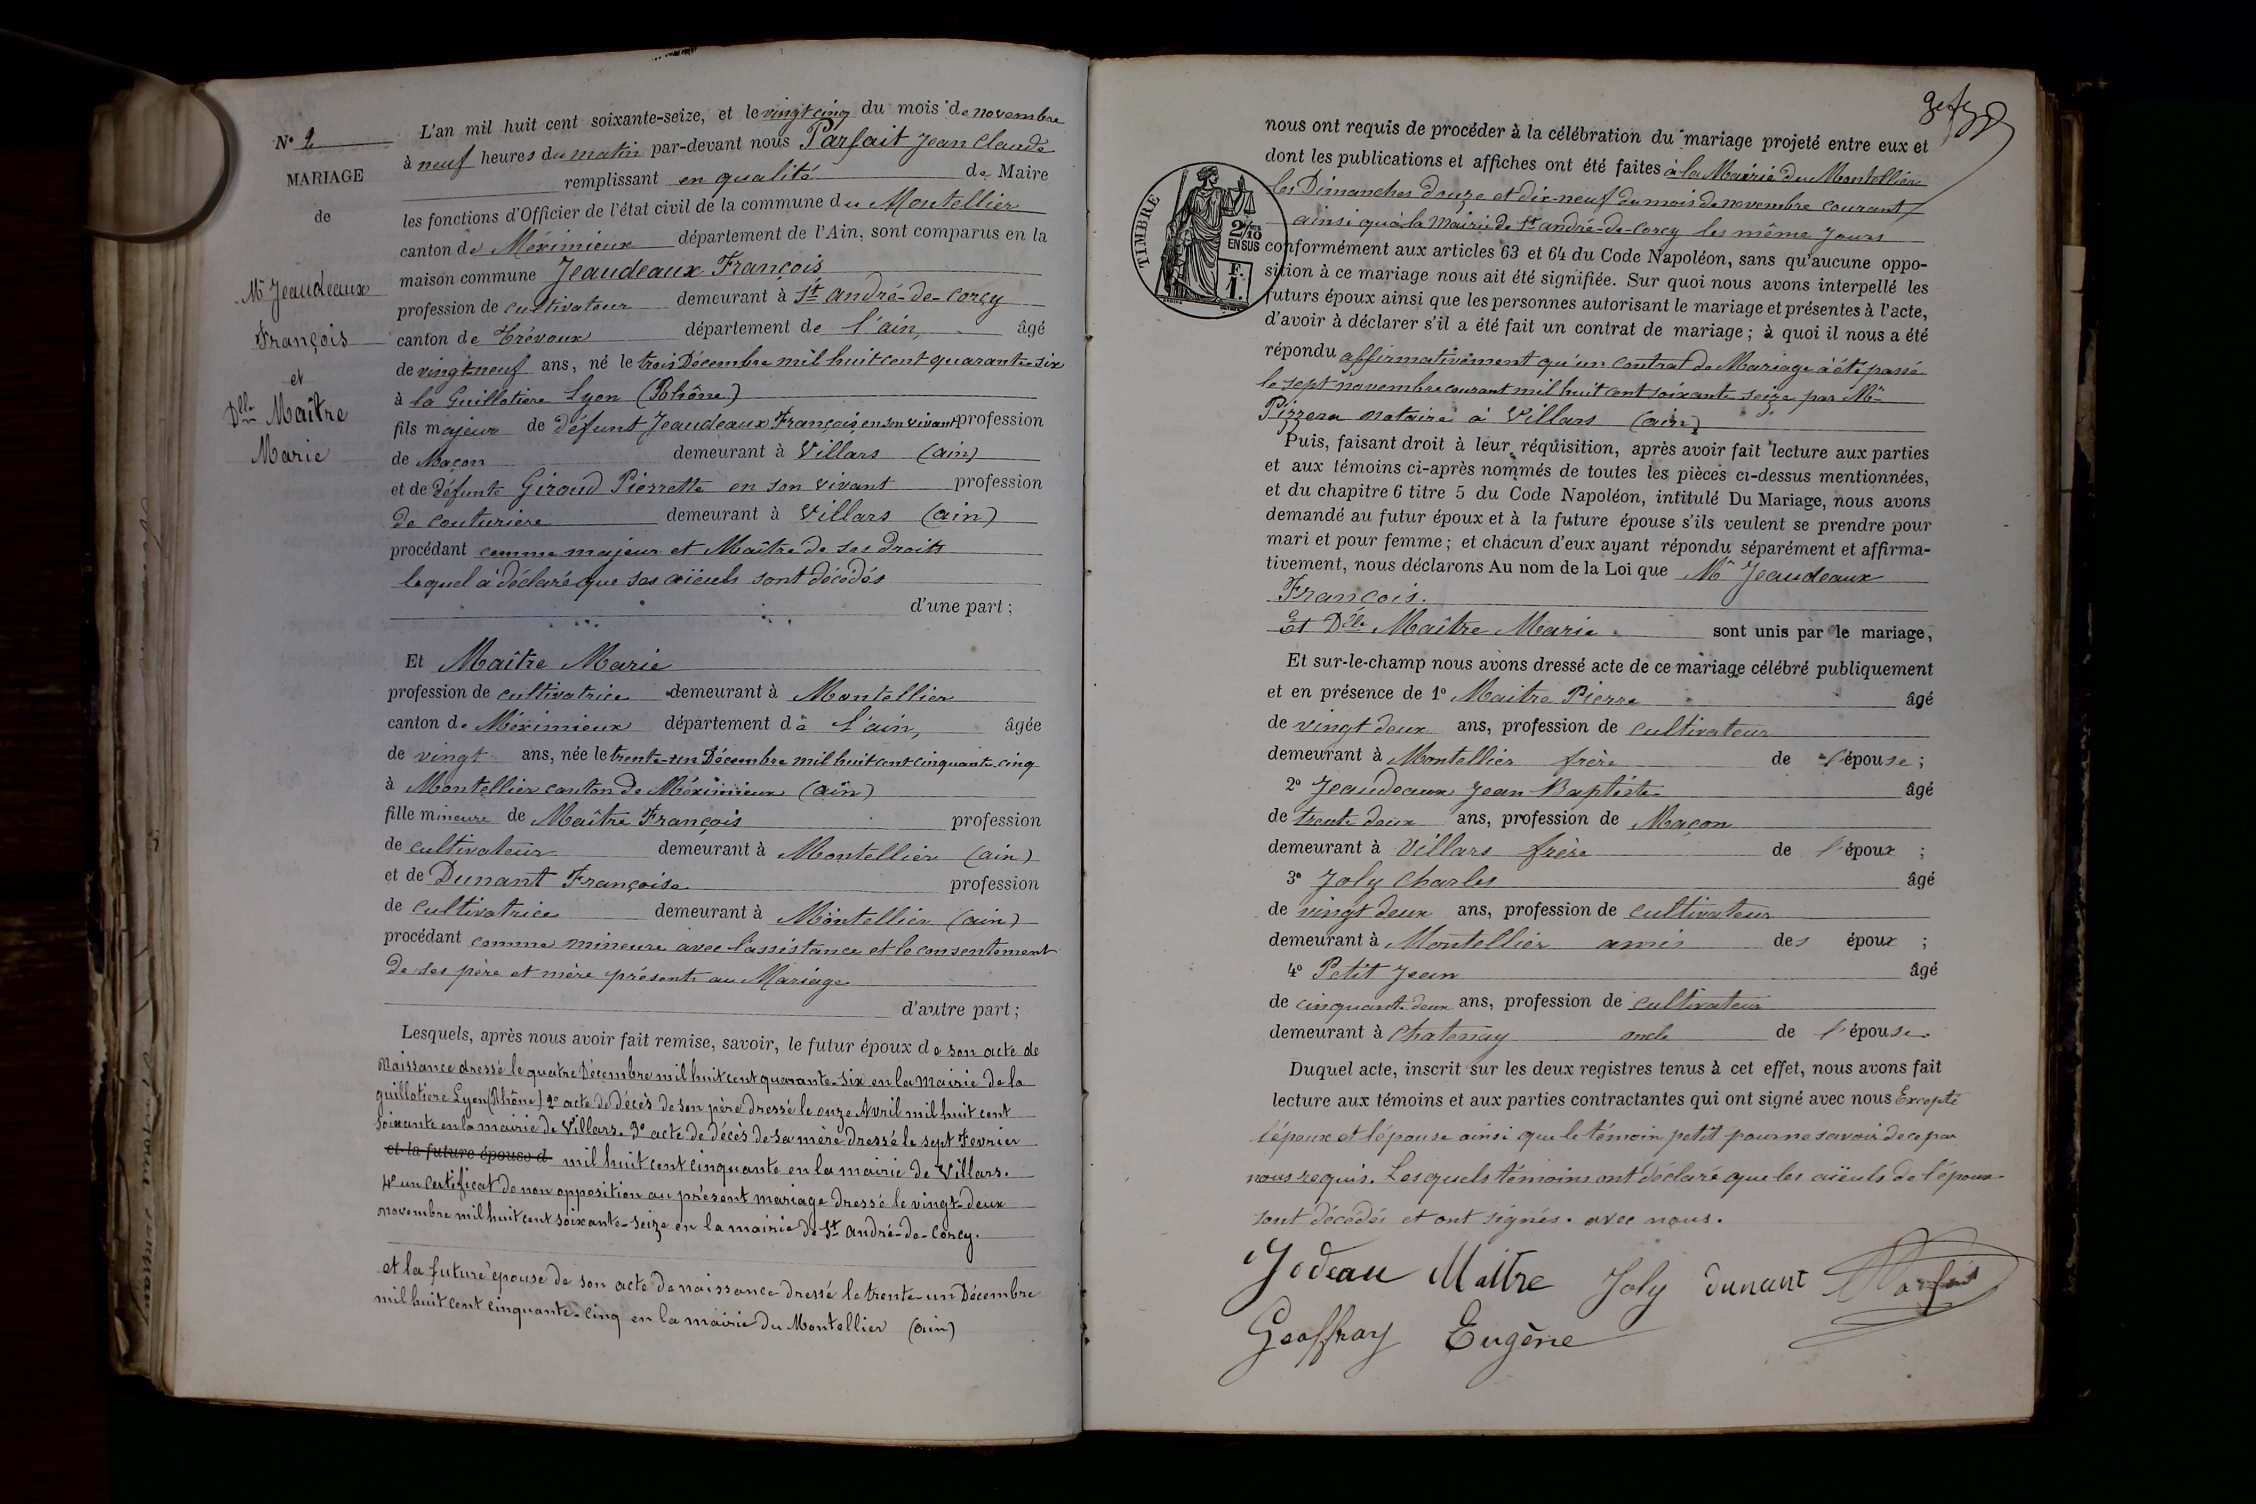 N° 2
MARIAGE
de
Mr Jeaudeaux
François
et
Dlle Maître
Marie
L'an mil huit cent soixante-seize, et le vingt cinq du mois de novembre
à neuf heures du matin par-devant nous Parfait Jean Claude
remplissant en qualité de Maire
les fonctions d'Officier de l'état civil de la commune du Montellier
canton de Méximieux département de l'Ain, sont comparus en la
maison commune Jeaudeaux François
profession de cultivateur demeurant à St André-de-Corcy
canton de Trévoux département de l'ain, âgé
de vingt neuf ans, né le trois Décembre mil huit cent quarante-six
à la Guillotière Lyon (Rhône)
fils majeur de défunt Jeaudeaux François en son vivant profession
de Maçon demeurant à Villars (ain)
et de défunte Giroud Pierrette en son vivant profession
de couturière demeurant à Villars (ain)
procédant comme majeur et Maître de ses droits
lequel à déclaré que ses aïeuls sont décédés
d'une part ;
Et Maître Marie
profession de cultivatrice demeurant à Montellier
canton de Méximieux département de l'ain, âgée
de vingt ans, née le trente-un Décembre mil huit cent cinquante cinq
à Montellier canton de Méximieux (ain)
fille mineure de Maître François profession
de cultivateur demeurant à Montellier (ain)
et de Dunant Françoise profession
de cultivatrice demeurant à Montellier (ain)
procédant comme mineure avec l'assistance et le consentement
de ses père et mère présents au Mariage
d'autre part ;
Lesquels, après nous avoir fait remise, savoir, le futur époux de son acte de
Naissance dressé le quatre Décembre mil huit cent quarante-six en la mairie de la
guillotière Lyon (Rhône) 2° acte de décès de son père dressé le onze Avril mil huit cent
soixante en la mairie de Villars. 3° acte de décès de sa mère dressé le sept Fevrier
et la future épouse d mil huit cent cinquante en la mairie de Villars.
4° un certificat de non opposition au présent mariage dressé le vingt-deux
novembre mil huit cent soixante-seize en la mairie de St André-de-Corcy.
et la future épouse de son acte de naissance dressé le trente-un Décembre
mil huit cent cinquante-cinq en la mairie du Montellier (ain)
TIMBRE
2/10
EN SUS
F.
1.
nous ont requis de procéder à la célébration du mariage projeté entre eux et
dont les publications et affiches ont été faites à la Mairie du Montellier
les Dimanches douze et dix-neuf du mois de novembre courant
ainsi qu'à la Mairie de St andré-de-Corcy les même Jours
conformément aux articles 63 et 64 du Code Napoléon, sans qu'aucune oppo-
sition à ce mariage nous ait été signifiée. Sur quoi nous avons interpellé les
futurs époux ainsi que les personnes autorisant le mariage et présentes à l'acte,
d'avoir à déclarer s'il a été fait un contrat de mariage ; à quoi il nous a été
répondu affirmativement qu'un Contrat de Mariage à été passé
le sept novembre courant mil huit cent soixante seize par Me
Pizzera notaire à Villars (ain)
Puis, faisant droit à leur réquisition, après avoir fait lecture aux parties
et aux témoins ci-après nommés de toutes les pièces ci-dessus mentionnées,
et du chapitre 6 titre 5 du Code Napoléon, intitulé Du Mariage, nous avons
demandé au futur époux et à la future épouse s'ils veulent se prendre pour
mari et pour femme ; et chacun d'eux ayant répondu séparément et affirma-
tivement, nous déclarons Au nom de la Loi que Mr Jeaudeaux
François.
Et Dlle Maître Marie sont unis par le mariage,
Et sur-le-champ nous avons dressé acte de ce mariage célébré publiquement
et en présence de 1° Maitre Pierre âgé
de vingt deux ans, profession de cultivateur
demeurant à Montellier frère de l'épouse ;
2° Jeaudeaux Jean Baptiste âgé
de trente deux ans, profession de Maçon
demeurant à Villars frère de l'époux ;
3° Joly Charles âgé
de vingt deux ans, profession de cultivateur
demeurant à Montellier amis des époux ;
4° Petit Jean âgé
de cinquante-deux ans, profession de cultivateur
demeurant à Chatenay oncle de l'épouse
Duquel acte, inscrit sur les deux registres tenus à cet effet, nous avons fait
lecture aux témoins et aux parties contractantes qui ont signé avec nous Excepté
l'époux et l'épouse ainsi que le témoin petit pour ne savoir de ce par
nous requis. Lesquels témoins ont déclaré que les aïeuls de l'époux
sont décédés et ont signés. avec nous.
Jodeau Maitre Joly Dunant Parfait
Geoffray Eugène